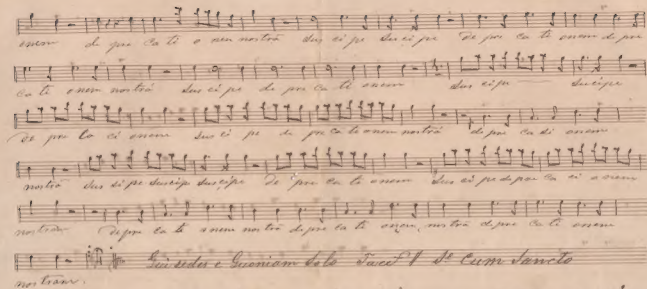 onem de pre ca ti o nem nostrã sus ci pe suci pe de pre ca ti onem de pre
ca ti onem nostrã sus ci pe de pre ca ti onem sus cipe sucipe
de pre ca ci onem sus ci pe de pre ca ti onem nostrã de pre ca ti onem
nostrã sus ci pe suscipe suscipe de pre ca ti onem sus ci pe de pre ca ci o nem
nostram depre ca ti onem nos trã de pre ca ti onem nostrã de pre ca ti onem
Qui sedes e Quoniam Solo Tacet Cum Sancto
nostram.